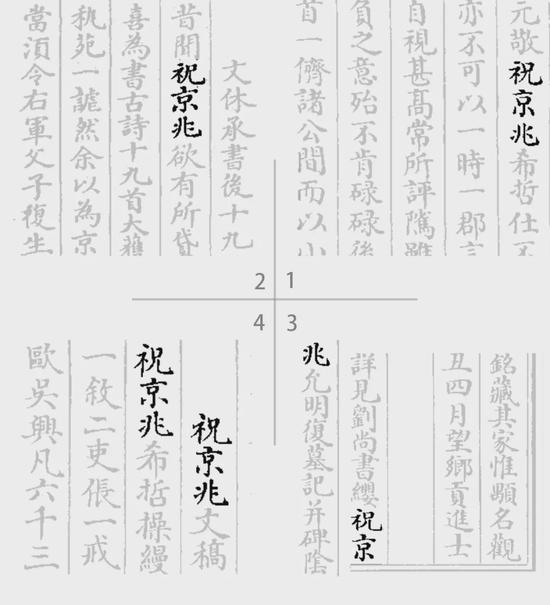 1
元敬祝京兆希哲仕不
亦不可以一時一郡言
自視甚高常所評隲雖
負之意殆不肯碌碌後
首一儕諸公間而以小
2
文休承書後十九
昔聞祝京兆欲有所貸
喜為書古詩十九首大
秇苑一謔然余以為京
當湏令右軍父子復生
3
銘藏其家惟顒名觀
丑四月望鄉貢進士
詳見劉尚書纓祝京
兆允明復墓記并碑陰
4
祝京兆文稿
祝京兆希哲操縵
一敘二吏倀一戒
歐吳興凡六千三